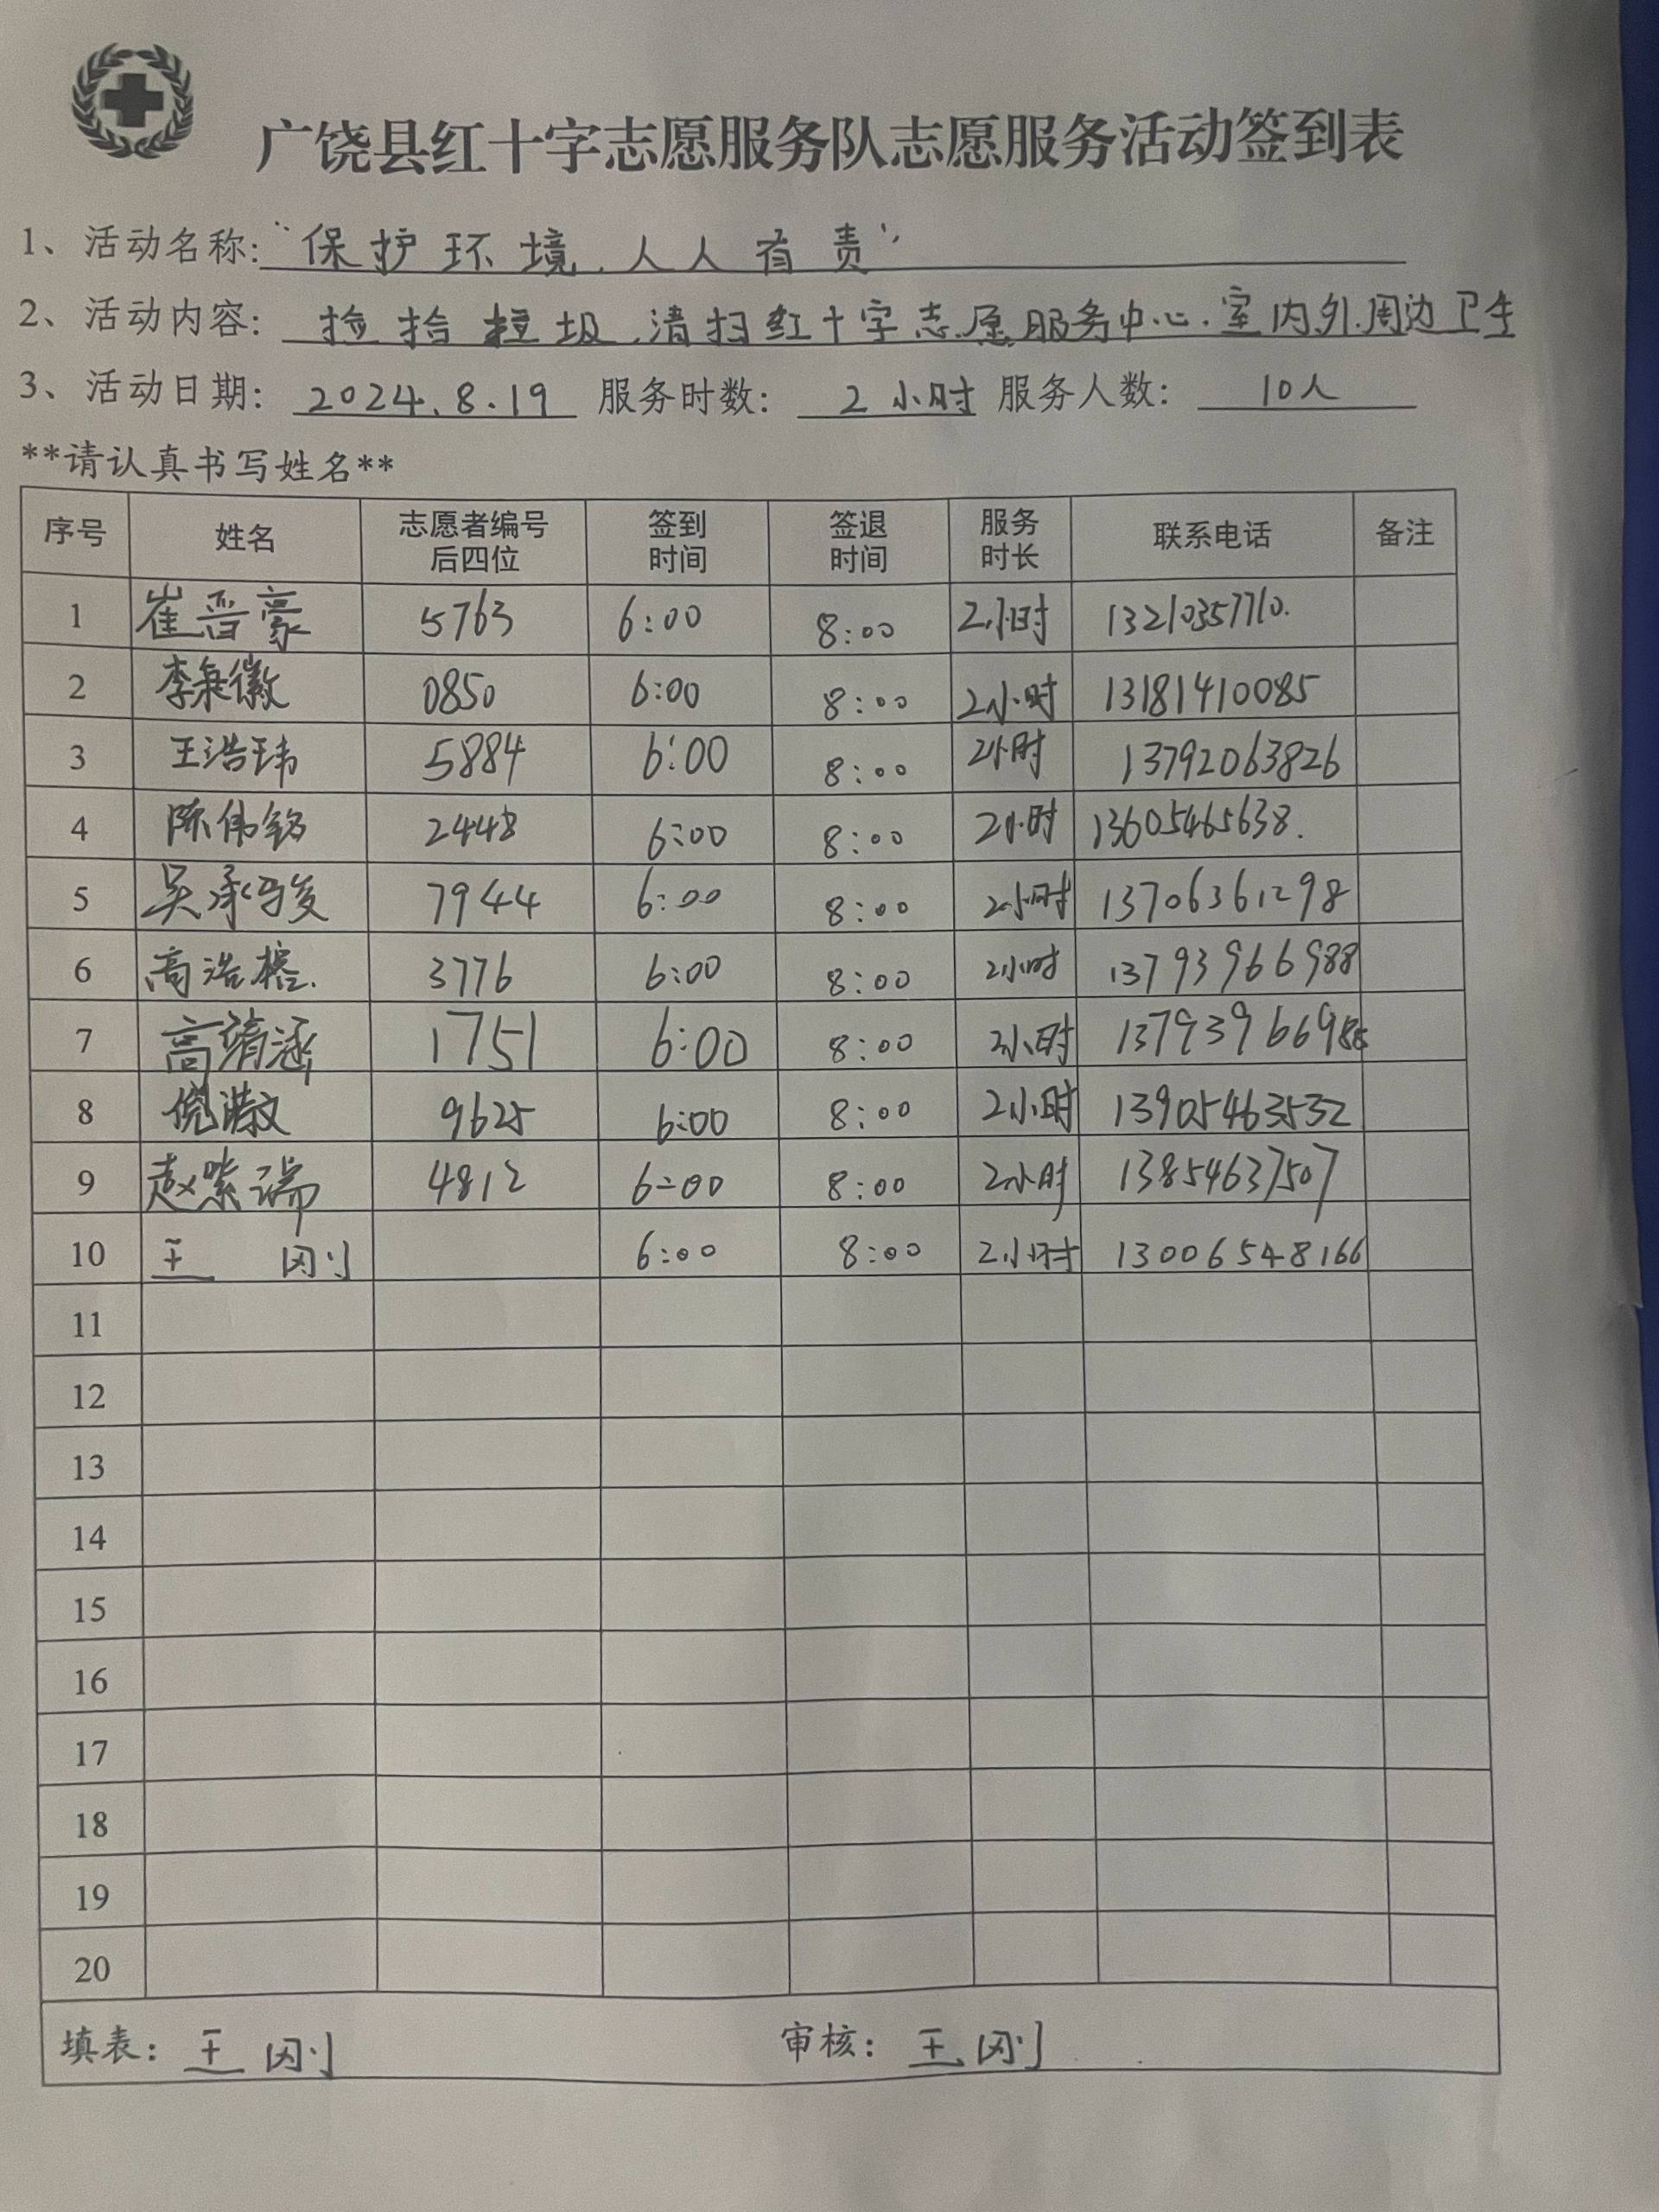 广饶县红十字志愿服务队志愿服务活动签到表
1、活动名称:“保护环境.人人有责”
2、活动内容: 捡拾垃圾.清扫红十字志愿服务中心.室内外.周边卫生
3、活动日期: 2024.8.19 服务时数: 2小时 服务人数: 10人
**请认真书写姓名**
序号 姓名 志愿者编号后四位 签到时间 签退时间 服务时长 联系电话 备注
1 崔晋豪 5763 6:00 8:00 2小时 13210357710.
2 李 徽 0850 6:00 8:00 2小时 13181410085
3 王浩玮 5884 6:00 8:00 2小时 13792063826
4 陈伟铭 2448 6:00 8:00 2小时 13605465638.
5 吴承骏 7944 6:00 8:00 2小时 13706361298
6 高浩 3776 6:00 8:00 2小时 13793966988
7 高靖涵 1751 6:00 8:00 2小时
8 倪 文 9625 6:00 8:00 2小时 13905463532
9 赵紫瑞 4812 6:00 8:00 2小时 13854637507
10 王刚 6:00 8:00 2小时 13006548166
11
12
13
14
15
16
17
18
19
20
填表: 王刚 审核: 王刚